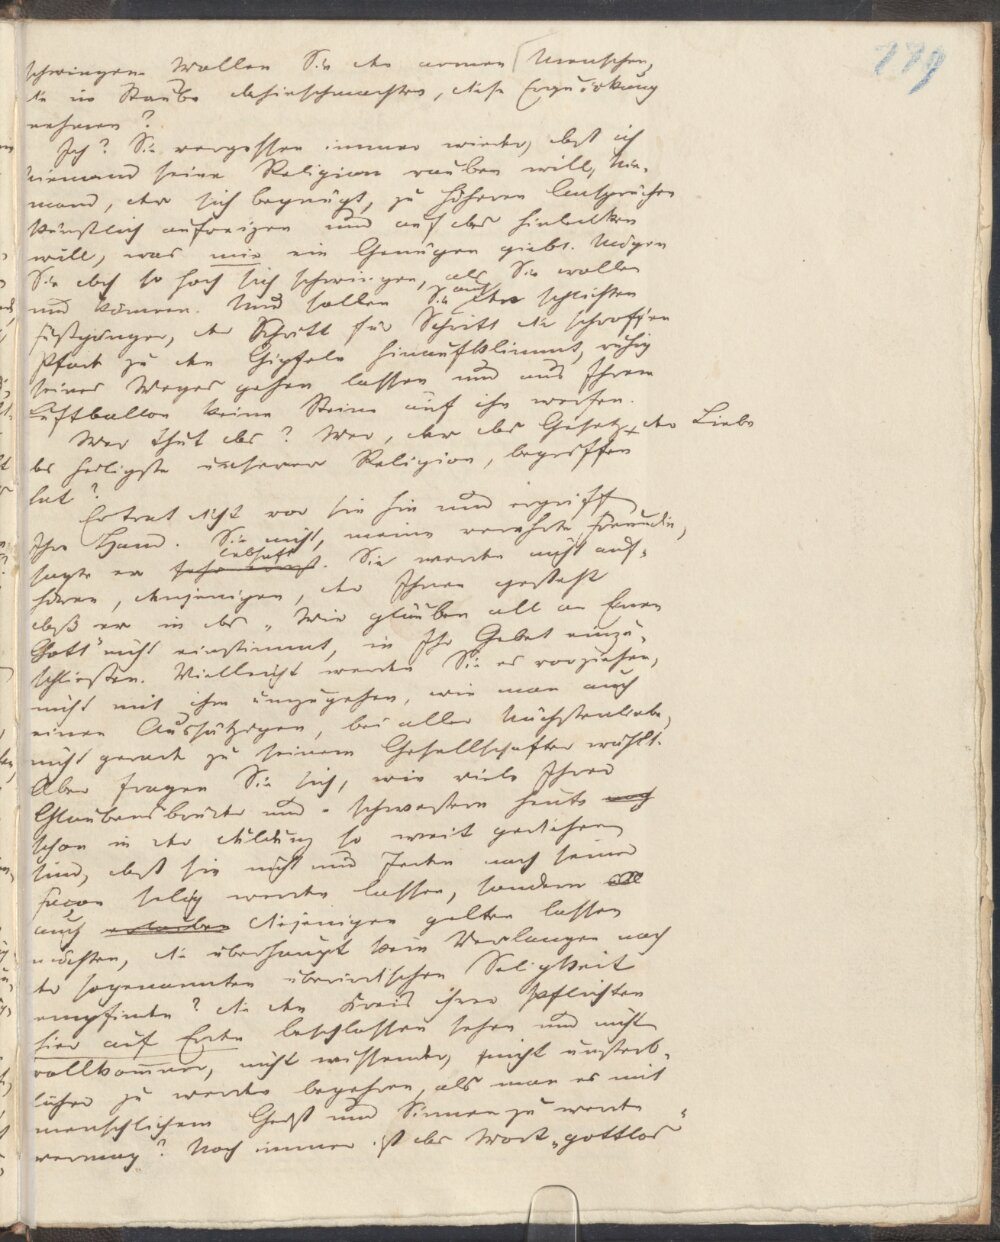 179
schwingen. Wollen Sie den armen Menschen,
die im Staube dahinschmachten, diese Erquickung
nehmen?
Ich? Sie vergessen immer wieder, daß ich
niemand seine Religion rauben will, Nie-
mand, der sich begnügt, zu höheren Ansprüchen
künstlich aufreizen und auf das hinlenken
will, was mir ein Genügen giebt. Mögen
Sie doch so hoch sich schwingen, als Sie wollen
und können. Nur sollen Sie auch den schlichten
Fußgänger, der Schritt für Schritt die schroffen
Pfade zu den Gipfeln hinaufklimmt, ruhig
seines Weges gehen lassen und aus Ihrem
Luftballon keine Steine auf ihn werfen.
Wer thut das? Wer, der das Gesetz der Liebe
das heiligste unserer Religion, begriffen
hat?
Er trat dicht vor sie hin und ergriff
Ihre Hand. Sie nicht, meine verehrte Freundin,
sagte er lebhaft. Sie werden nicht auf-
hören, denjenigen, der Ihnen gesteht
daß er in das „Wir glauben all an Einen
Gott" nicht einstimmt, in Ihr Gebet einzu-
schließen. Vielleicht werden Sie es vorziehen,
nicht mit ihm umzugehen, wie man auch
einen Aussätzigen, bei aller Nächstenliebe,
nicht gerade zu seinem Gesellschafter wählt.
Aber fragen Sie sich, wie viele Ihrer
Glaubensbrüder und -schwestern heute noch
schon in der Duldung so weit gediehen
sind, daß sie nicht nur Jeden nach seiner
Façon selig werden lassen, sondern
auch erlauben diejenigen gelten lassen
möchten, die überhaupt kein Verlangen nach
der sogenannten überirdischen Seligkeit
empfinden? die den Kreis ihrer Pflichten
hier auf Erden beschlossen sehen und nicht
vollkommner, nicht wissender, nicht unsterb-
licher zu werden begehren, als man es mit
menschlichem Geist und Sinnen zu werden
vermag? Noch immer ist das Wort „gottlos"